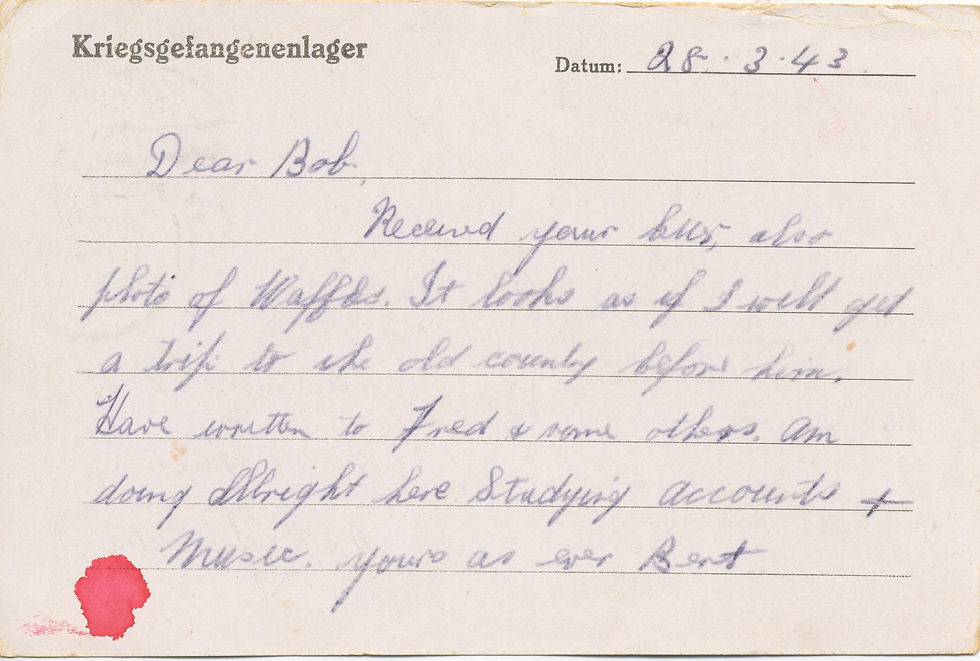 Kriegsgefangenenlager
Datum: 28.3.43.
Dear Bob,
Received your letter, also
photo of Waffles. It looks as if I will get
a trip to the old country before him.
Have written to Fred + some others. Am
doing Allright here Studying Accounts +
Music. yours as ever Bert